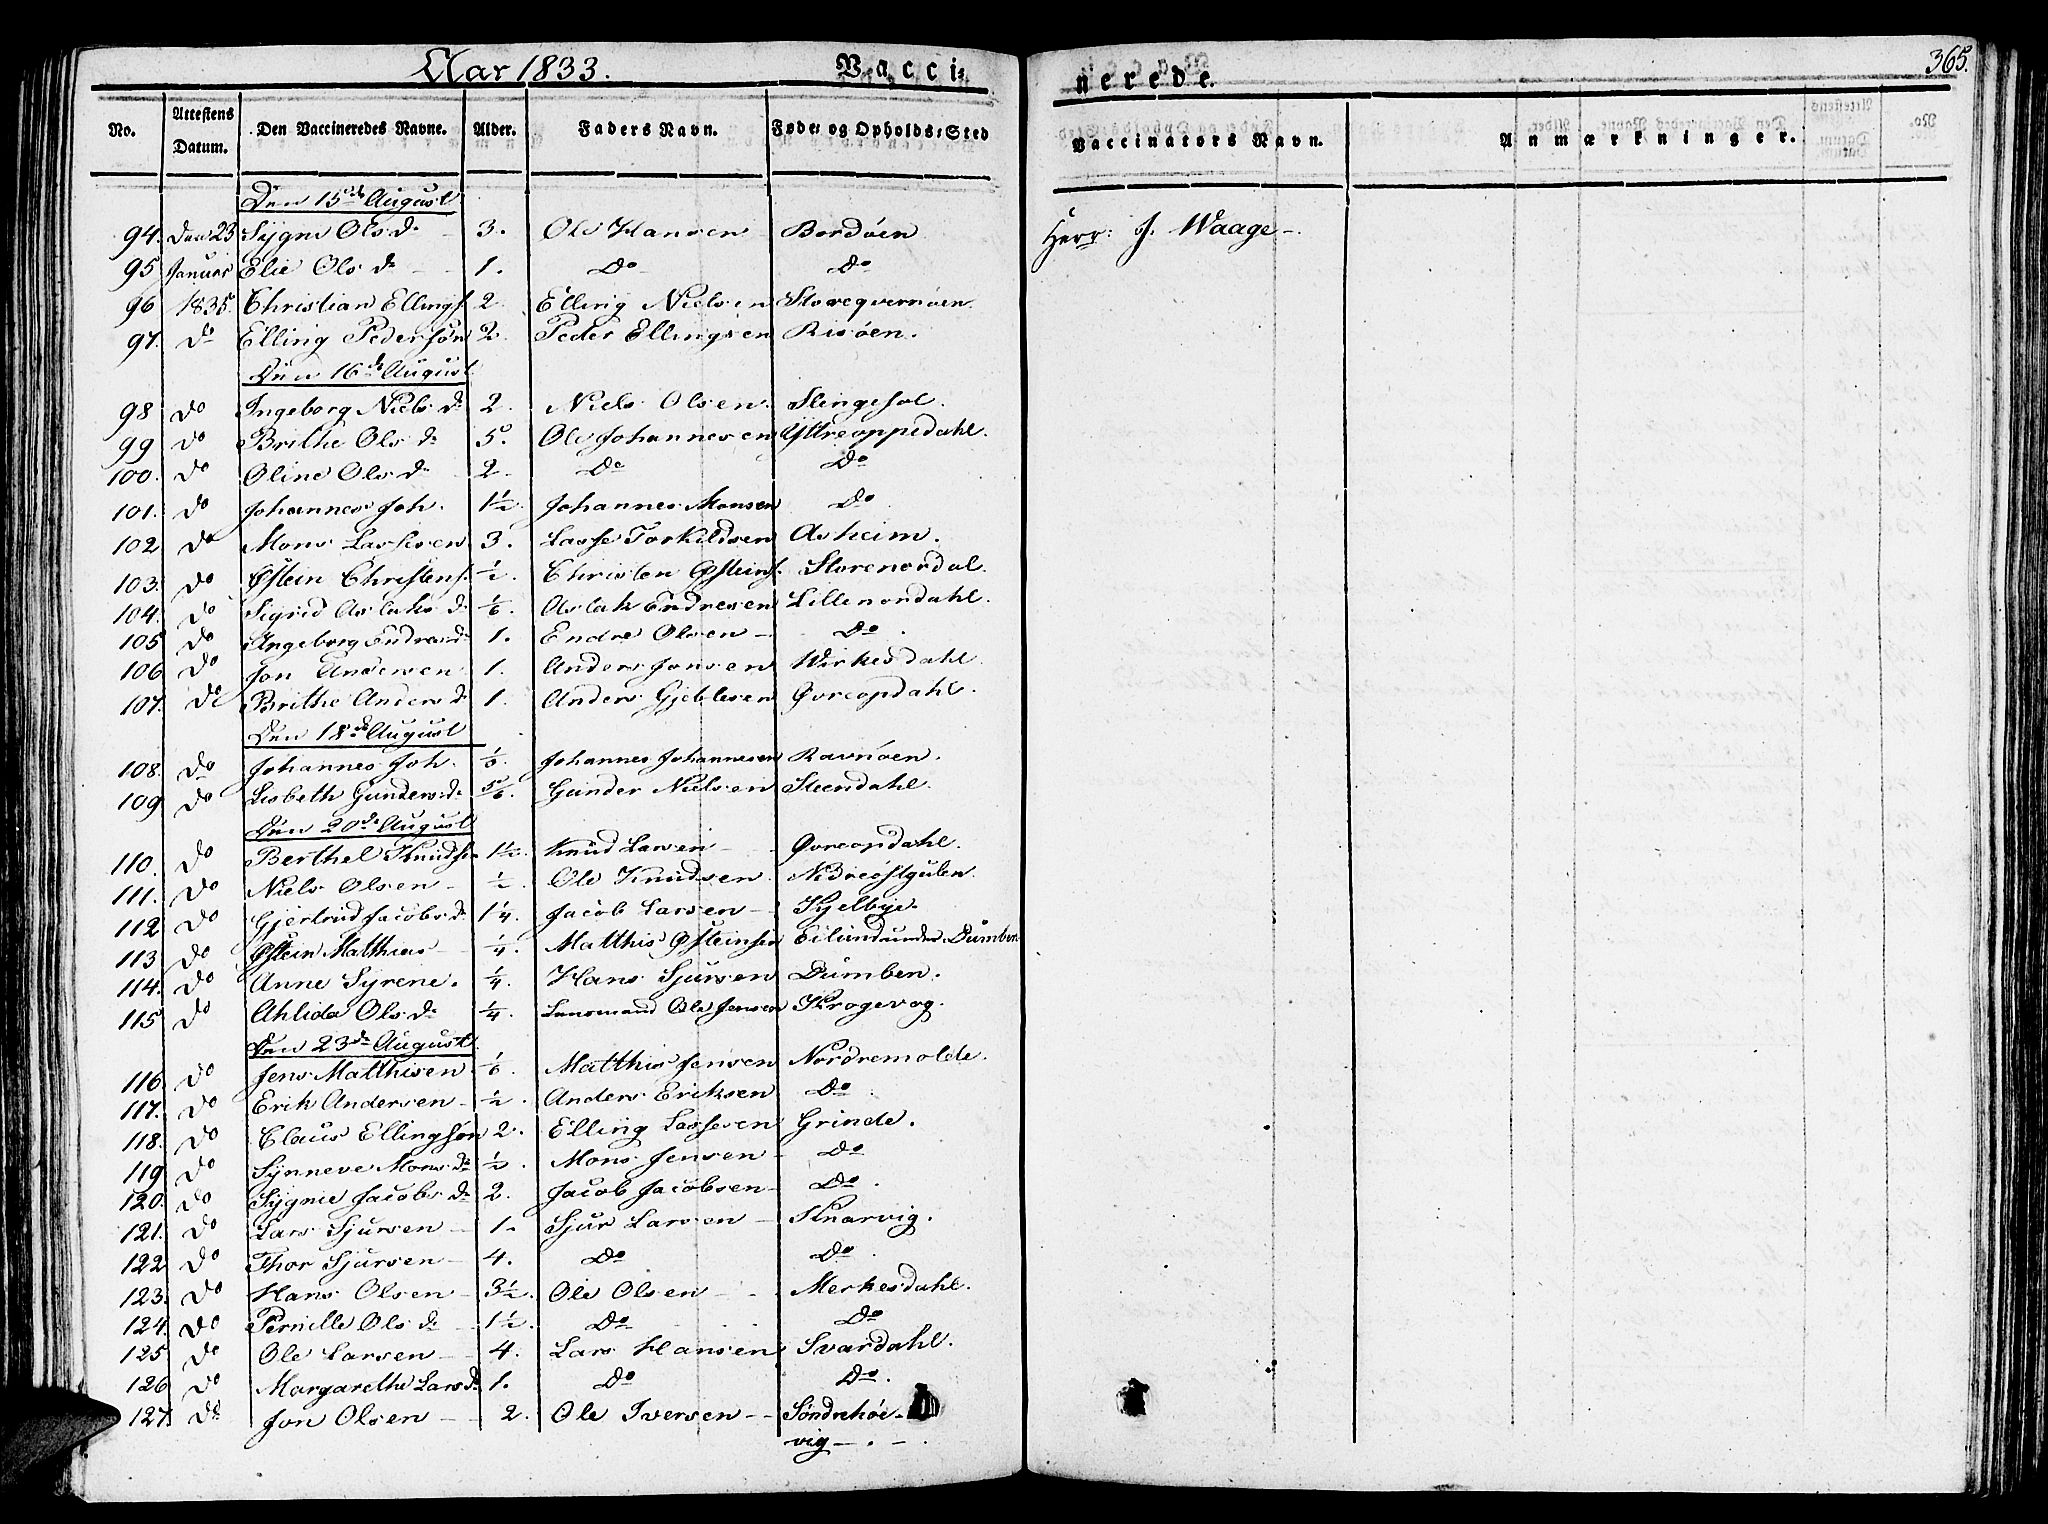 Aar 1833. Vacci- nerede. 365.
No. Attestens Datum. Den Vaccineredes Navne. Alder. Faders Navn. Føde- og Opholds-Sted Vaccinators Navn. Anmærkninger.
Den 15de August
94. Den 23 Sygne Olsd. 3. Ole Hansen Bordöen Herr: J. Waage
95 Januar Elie Olsd. 1. Do Do
96 1835. Christian Ellings. 2. Elling Nielsen Storeqvernöen.
97. do Elling Pedersøn 2. Peder Ellingsen Risöen.
Den 16de August
98 do Ingeborg Nielsd. 2. Niels Olsen. Slengesol.
99 do Brithe Olsd. 5. Ole Johannesen Yttreoppedahl.
100. do Oline Olsd. 2. Do Do
101. do Johannes Joh. 1½. Johannes Monsen Do
102 do Mons Lassesen 3. Lasse Torkildsen Asheim.
103. do Østein Christens. ½. Christen Østeins. Storenordal.
104. do Sigrid Aslaksd. 1/6. Aslak Endresen Lillenordahl.
105 do Ingeborg Endresd. 1. Endre Olsen Do.
106 do Jon Andersen 1. Anders Jonsen Wirkesdahl.
107. do Brithe Andersd. 1. Anders Gjeblesen Øvreopdahl.
Den 18de August
108. do Johannes Joh. 1/6. Johannes Johannesen Ravnöen.
109 do Lisbeth Gundersd. 5/6. Gunder Nielsen Steendahl.
Den 20de August
110. do Berthel Knuds. 1½. Knud Larsen Øvreopdahl.
111. do Niels Olsen ½. Ole Knudsen. Nedreöstgulen.
112 do Gjertrud Jacobsd. 1¼. Jacob Larsen Kjelbye.
113 do Østein Matthias ¼. Matthis Østeinsen Eilund under Dumben
114. do Anne Syrene. ¼. Hans Sjursen Dumben.
115 do Ahlida Olsd. ¼. Lensmand Ole Jensen Krogevog.
Den 23de August
116. do Jens Matthisen 1/6. Matthis Jensen Nordremolde.
117. do Erik Andersen ½. Anders Eriksen Do.
118. do Claus Ellingsøn 2. Elling Lassesen Grinde.
119 do Synneve Monsd. ½. Mons Jensen Do
120. do Sygnie Jacobsd. 2. Jacob Jacobsen Do.
121. do Lars Sjursen 1. Sjur Larsen Knarvig.
122 do Thor Sjursen 4. Do Do.
123. do Hans Olsen 3½. Ole Olsen Merkesdahl.
124. do Pernille Olsd. 1½. Do Do
125 do Ole Larsen 4. Lars Hansen Svardahl.
126 do Margarethe Larsd. 1. Do Do.
127. do Jon Olsen 2. Ole Iversen Söndrehöe-
vig